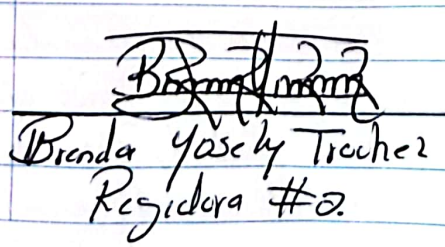 Brenda Yosely Trochez
Regidora #2.